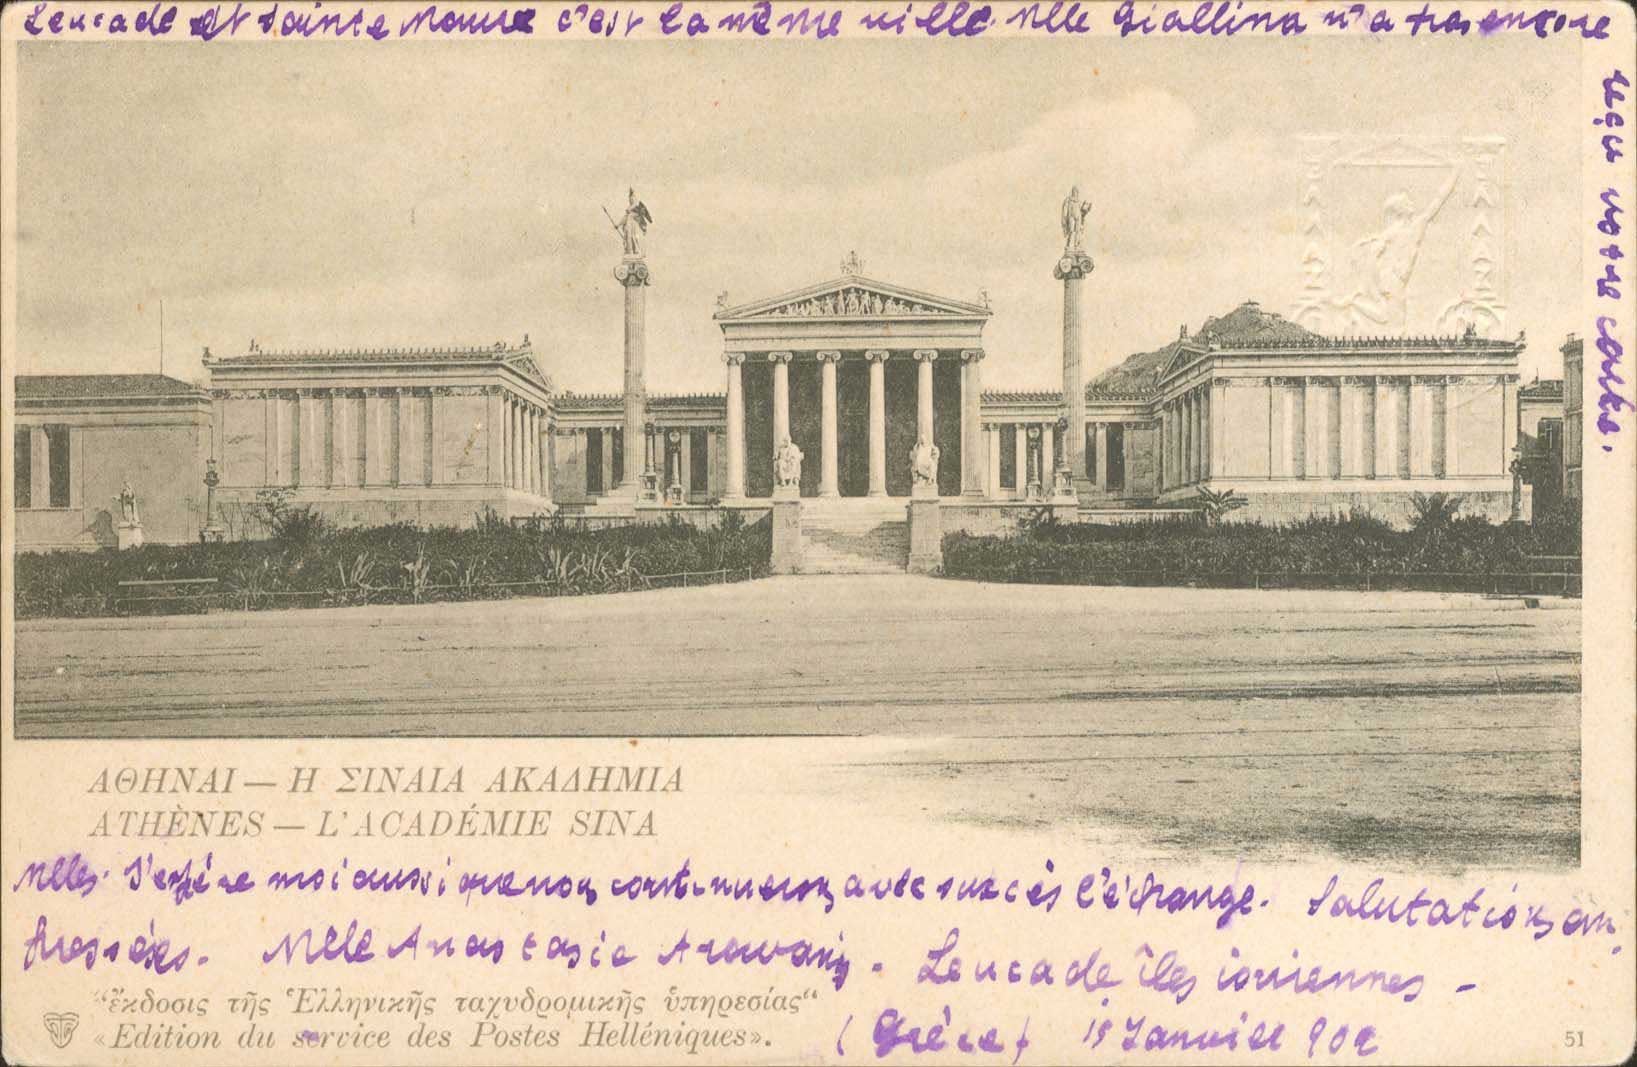 Leucade et Sainte Maure c'est la même ville. Mlle Giallina n'a pas encore
reçu votre carte.
ΑΘΗΝΑΙ — Η ΣΙΝΑΙΑ ΑΚΑΔΗΜΙΑ
ATHÈNES — L'ACADÉMIE SINA
Mlles. J'espére moi aussi que nous continuerons avec succès l'échange. Salutations em-
pressées. Mlle Anastasie - Leucade îles ioniennes -
"ἔκδοσις τῆς Ἑλληνικῆς ταχυδρομικῆς ὑπηρεσίας"
«Edition du service des Postes Helléniques».
(Grèce) 15 Janvier 902
51